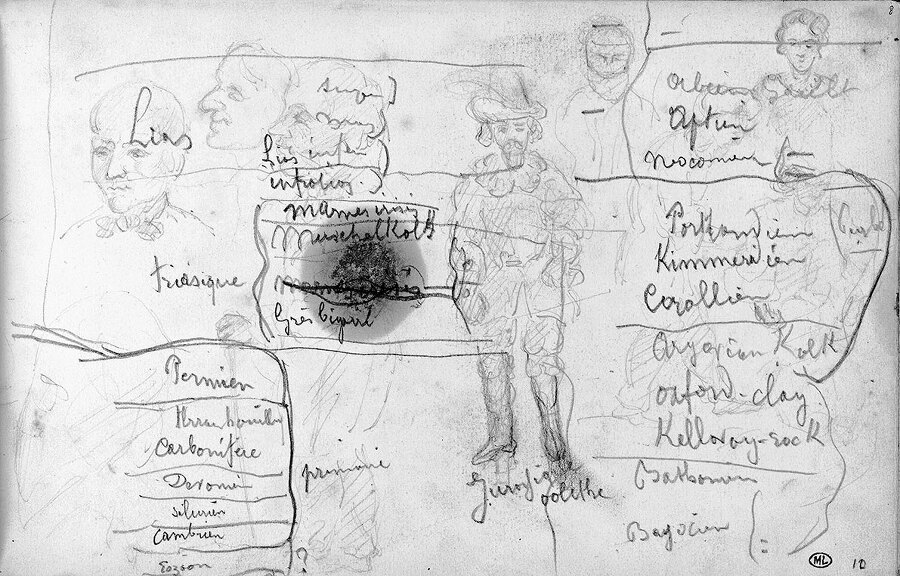 8
Lias
Lias infér
infralias
Muschelkalk
triasique
Grès bigarré
Permien
houiller
Carbonifère
Devonien
silurien
Cambrien
Eozoon
primaire
?
Jurassiq
oolithe
Gault
Aptien
neocomien
Portlandien
Kimmeridien
Corallien
Purbek
Argovien Kalk
oxford-clay
Kelloway-rock
Bathonien
Bajocien
ML
10